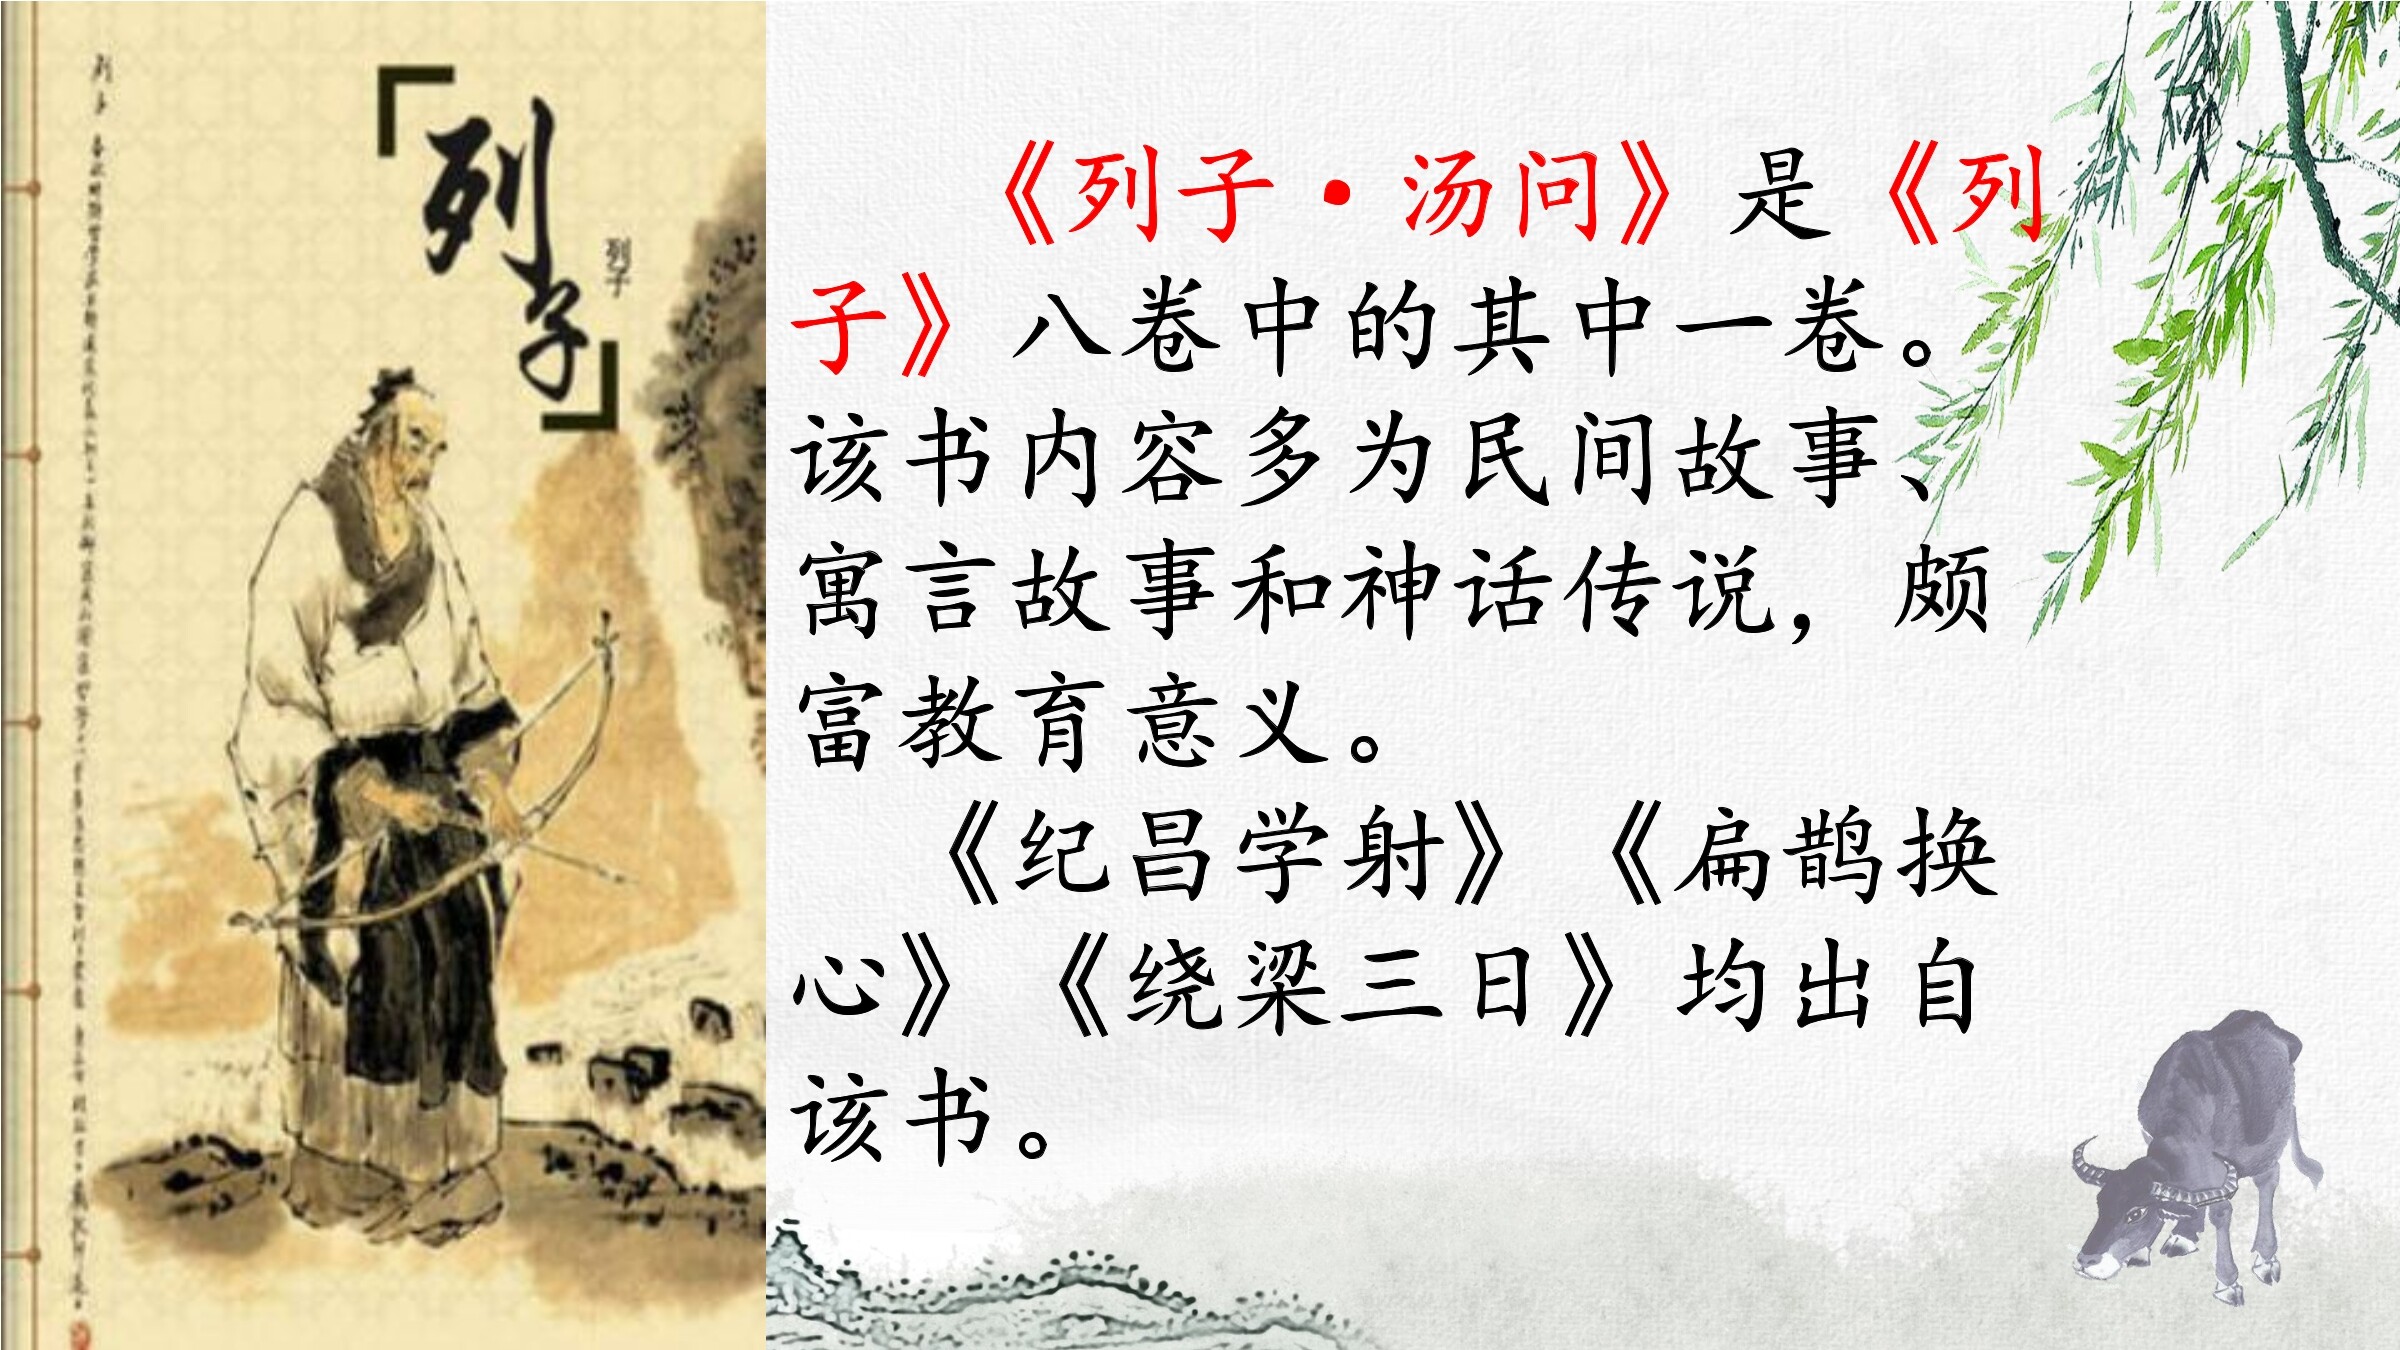 列子
列子
《列子·汤问》是《列
子》八卷中的其中一卷。
该书内容多为民间故事、
寓言故事和神话传说，颇
富教育意义。
《纪昌学射》《扁鹊换
心》《绕梁三日》均出自
该书。